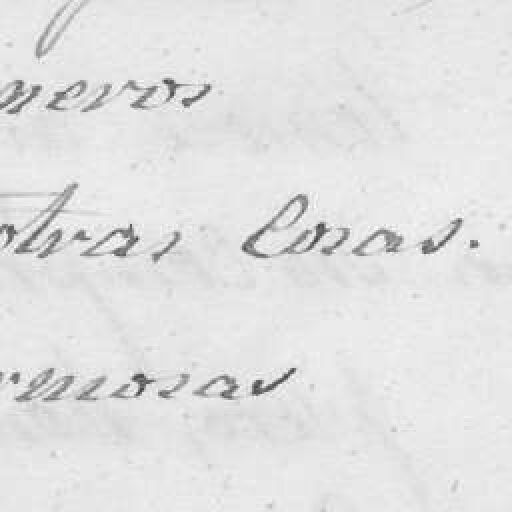 neros
otras Cosas.
rmosas